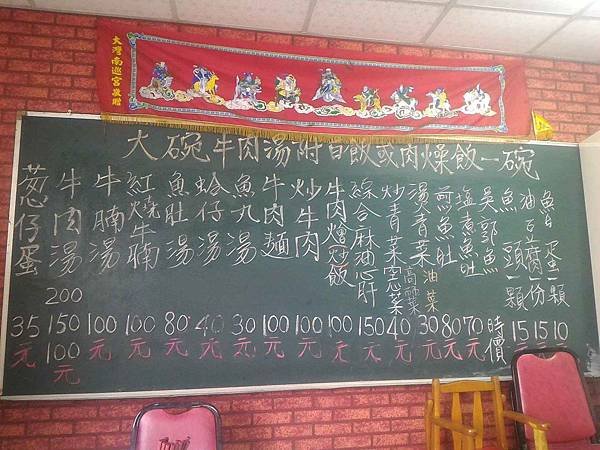 大灣南巡宮敬贈
大碗牛肉湯附白飯或肉燥飯一碗
魯蛋一顆 10元
油豆腐一份 15元
魚頭一顆 15元
吳郭魚 時價
塩煮魚肚 70元
煎魚肚 80元
湯青菜 油菜 30元
炒青菜 空菜 高麗菜 40元
綜合麻油心肝 150元
牛肉燴炒飯 100元
炒牛肉 100元
牛肉麵 100元
魚丸湯 30元
蛤仔湯 40元
魚肚湯 80元
紅燒牛腩 100元
牛腩湯 100元
牛肉湯 200 150 100元
葱仔蛋 35元